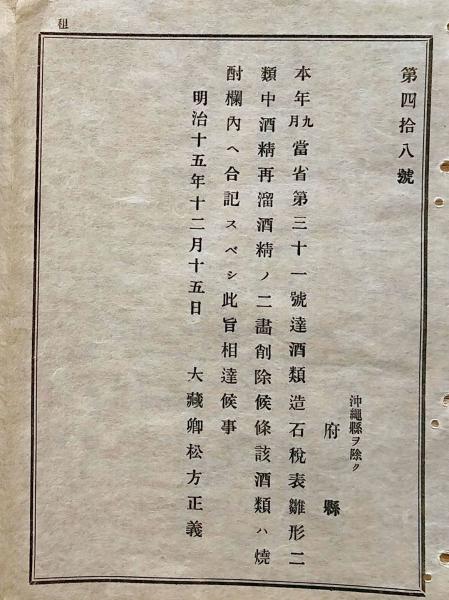 租
第四拾八號
沖繩縣ヲ除ク
府縣
本年九月當省第三十一號達酒類造石稅表雛形二
類中酒精再溜酒精ノ二畵削除候條該酒類ハ燒
酎欄內ヘ合記スベシ此旨相達候事
明治十五年十二月十五日 大藏卿松方正義